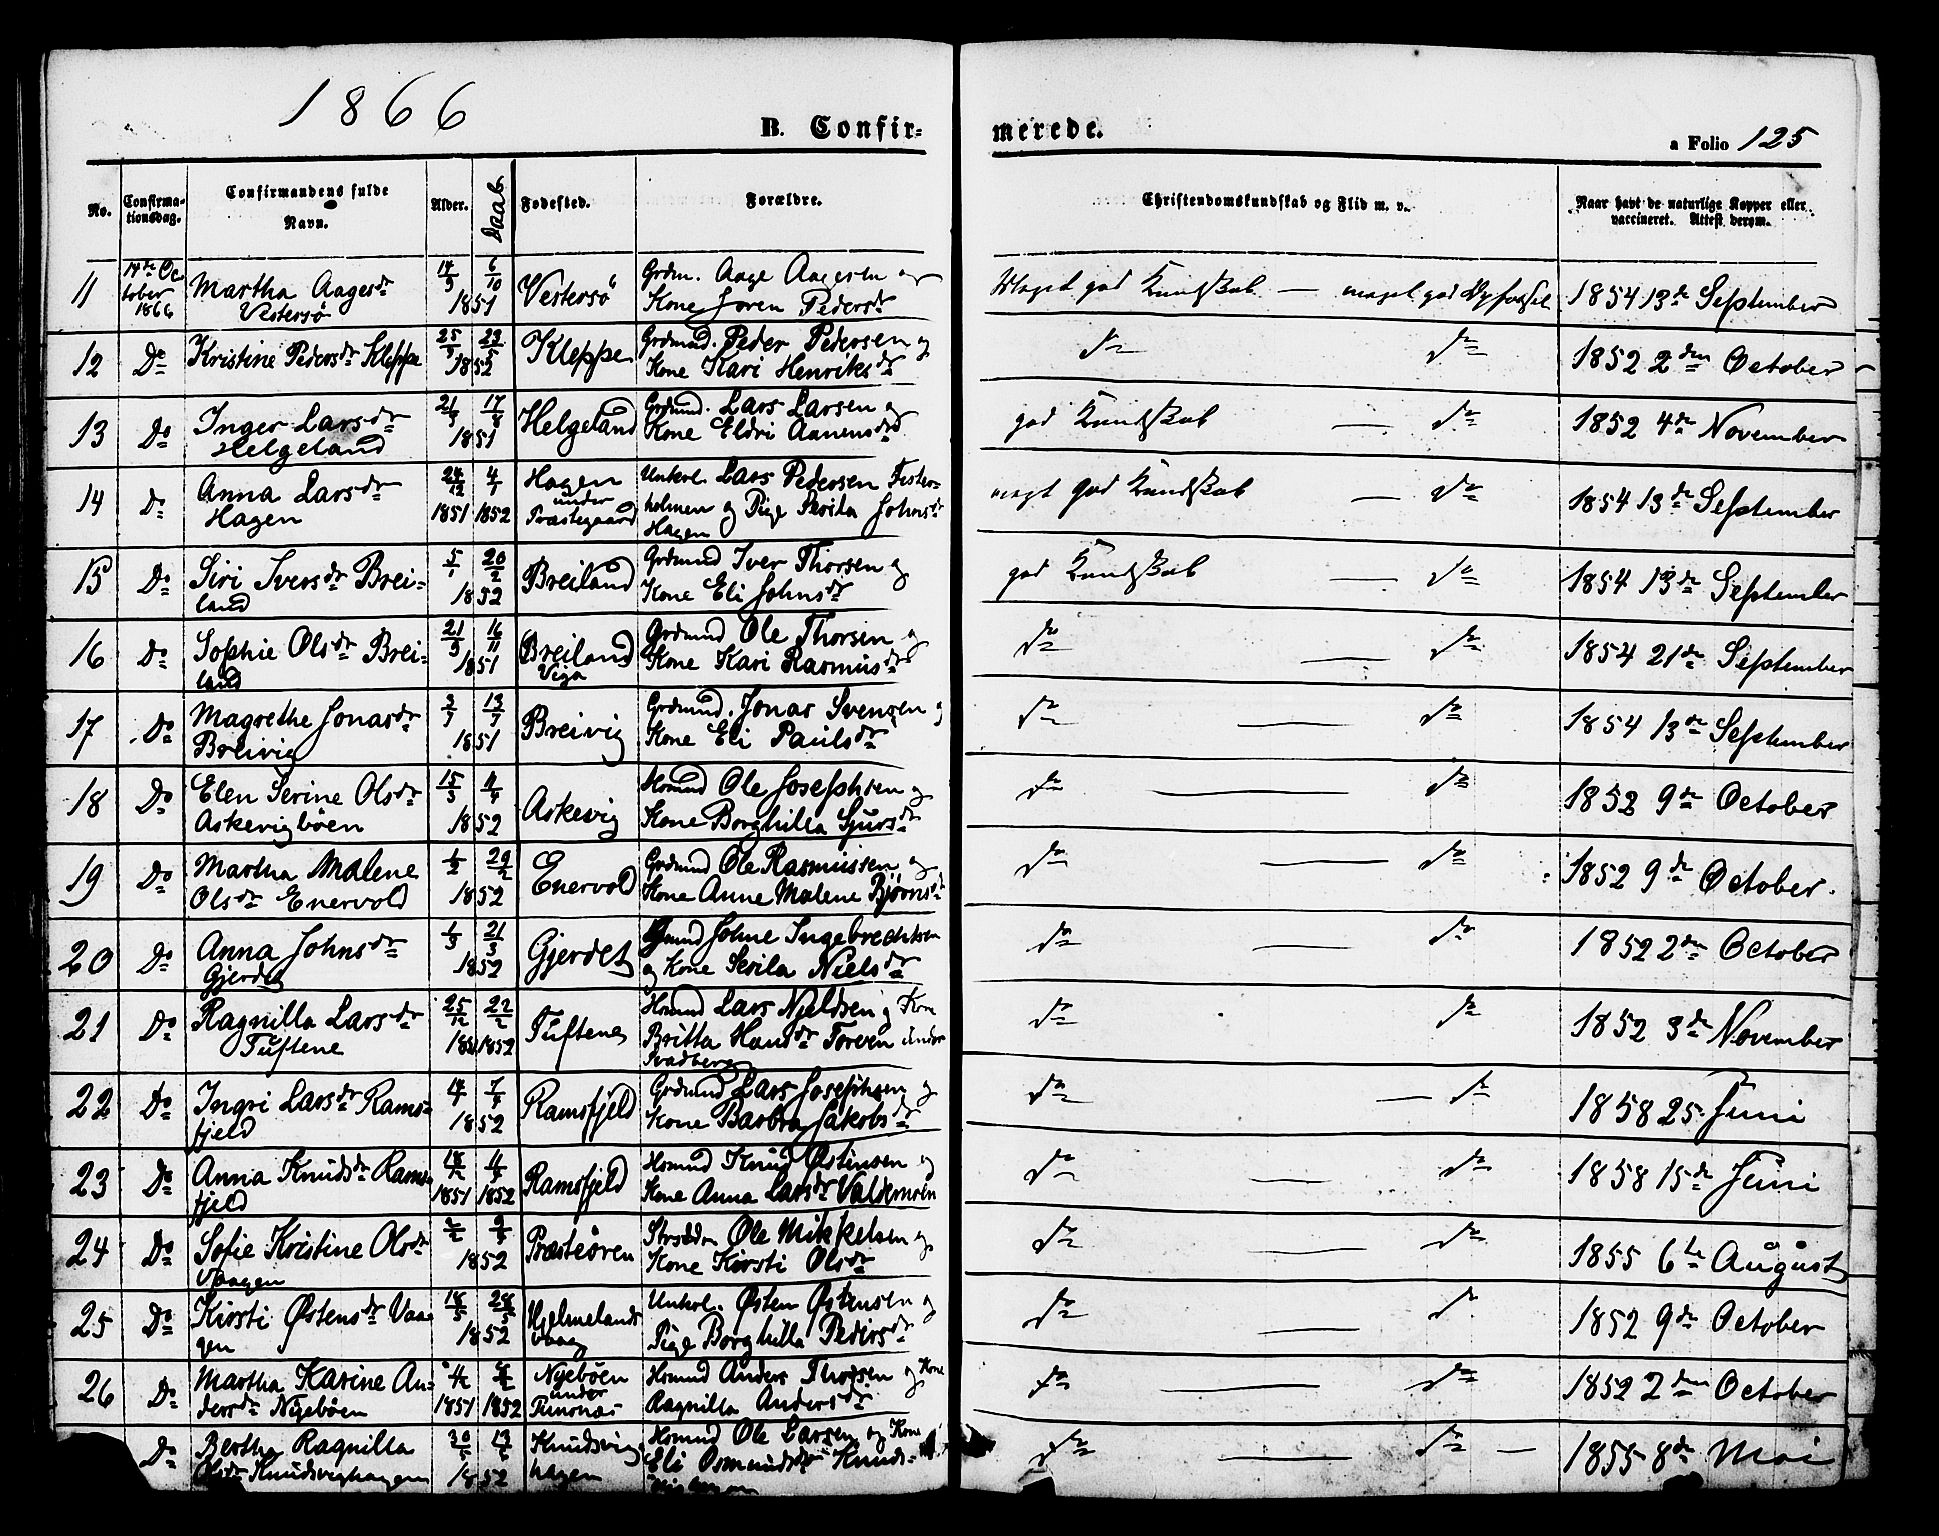 1866
B. Confirmerede.
a Folio 125
No. Confirmationsdag. Confirmandens fulde Navn. Alder. Daab. Fødested. Forældre. Christendomskundskab og Flid m. v. Naar havt de naturlige Kopper eller vaccineret. Attest derom.
11 14de October 1866 Martha Aagesdr Vestersø 6/10 1851 Vestersø Grdm. Aage Aagesen og Kone Joren Pedersdr Meget god Kundskab — meget god Opførsel 1854 13de September
12 Do Kristine Pedersdr Kleppe 1852 Kleppe Grdmnd. Peder Pedersen og Kone Kari Henriksdr do do 1852 2den October
13 Do Inger Larsdr Helgeland 17/8 1851 Helgeland Grdmnd. Lars Larsen og Kone Eldri Aanensdr god Kundskab — do 1852 4de November
14 Do Anna Larsdr Hagen 24/12 1851 4/1 1852 Hagen under Præstegaard Unkrl. Lars Pedersen Fisterholmen og Pige Serila Johnsdr Hagen meget god Kundskab — do 1854 13de September
15 Do Siri Iversdr Breiland 5/1 20/2 1852 Breiland Grdmnd Iver Thorsen og Kone Eli Johnsdr god Kundskab — do 1854 13de September
16 Do Sophie Olsdr Breiland 16/11 1851 Breiland Viga Grdmnd Ole Thorsen og Kone Kari Rasmusdr do — do 1854 21de September
17 Do Magrethe Jonasdr Breivig 13/7 1851 Breivig Grdmnd. Jonas Svensen og Kone Eli Paulsdr do — do 1854 13de September
18 Do Elen Serine Olsdr Askevigbøen 15/3 1852 Askevig Hsmnd Ole Josephsen og Kone Borghilla Sjursdr do — do 1852 9de October
19 Do Martha Malene Olsdr Enervold 1/2 29/2 1852 Enervold Grdmnd Ole Rasmussen og Kone Anne Malene Bjørnsdr do — do 1852 9de October.
20 Do Anna Johnsdr Gjerdet 1/3 21/3 1852 Gjerdet Johne Ingebrechtsen og Kone Serila Nielsdr do — do 1852 2den October
21 Do Ragnilla Larsdr Tuftene 25/12 1851 22/2 1852 Tuftene Hsmnd Lars Njeldsen og Kone Britta Hansdr under do do 1852 3de November
22 Do Ingri Larsdr Ramsfjeld 1852 Ramsfjeld Grdmnd Lars Josephsen og Kone Barbra Jakobsdr do — do 1858 25. Juni
23 Do Anna Knudsdr Ramsfjeld 1851 1852 Ramsfjeld Hsmnd Knud Østensen og Kone Anna Larsdr do — do 1858 15de Juni
24 Do Sofie Kristine Olsdr Vaagen 1852 Præsteøren Ole Mikkelsen og Kone Kirsti Olsdr do — do 1855 6te August
25 Do Kirsti Østensdr Vaagen 18/5 28/5 1852 Hjelmelandsvaag Unkrl. Østen Østensen og Pige Borghilla Pedersdr do — do 1852 9de October
26 Do Martha Karine Andersdr Nyebøen 1851 1852 Nyebøen under Hsmnd Anders Thorsen og Kone Ragnilla Andersdr do — do 1852 2den October
Do Bertha Ragnilla Olsdr Knudsvighagen 1852 Knudsvighagen Hsmnd Ole Larsen og Kone Eli Osmundsdr do — do — 1855 8de Mai